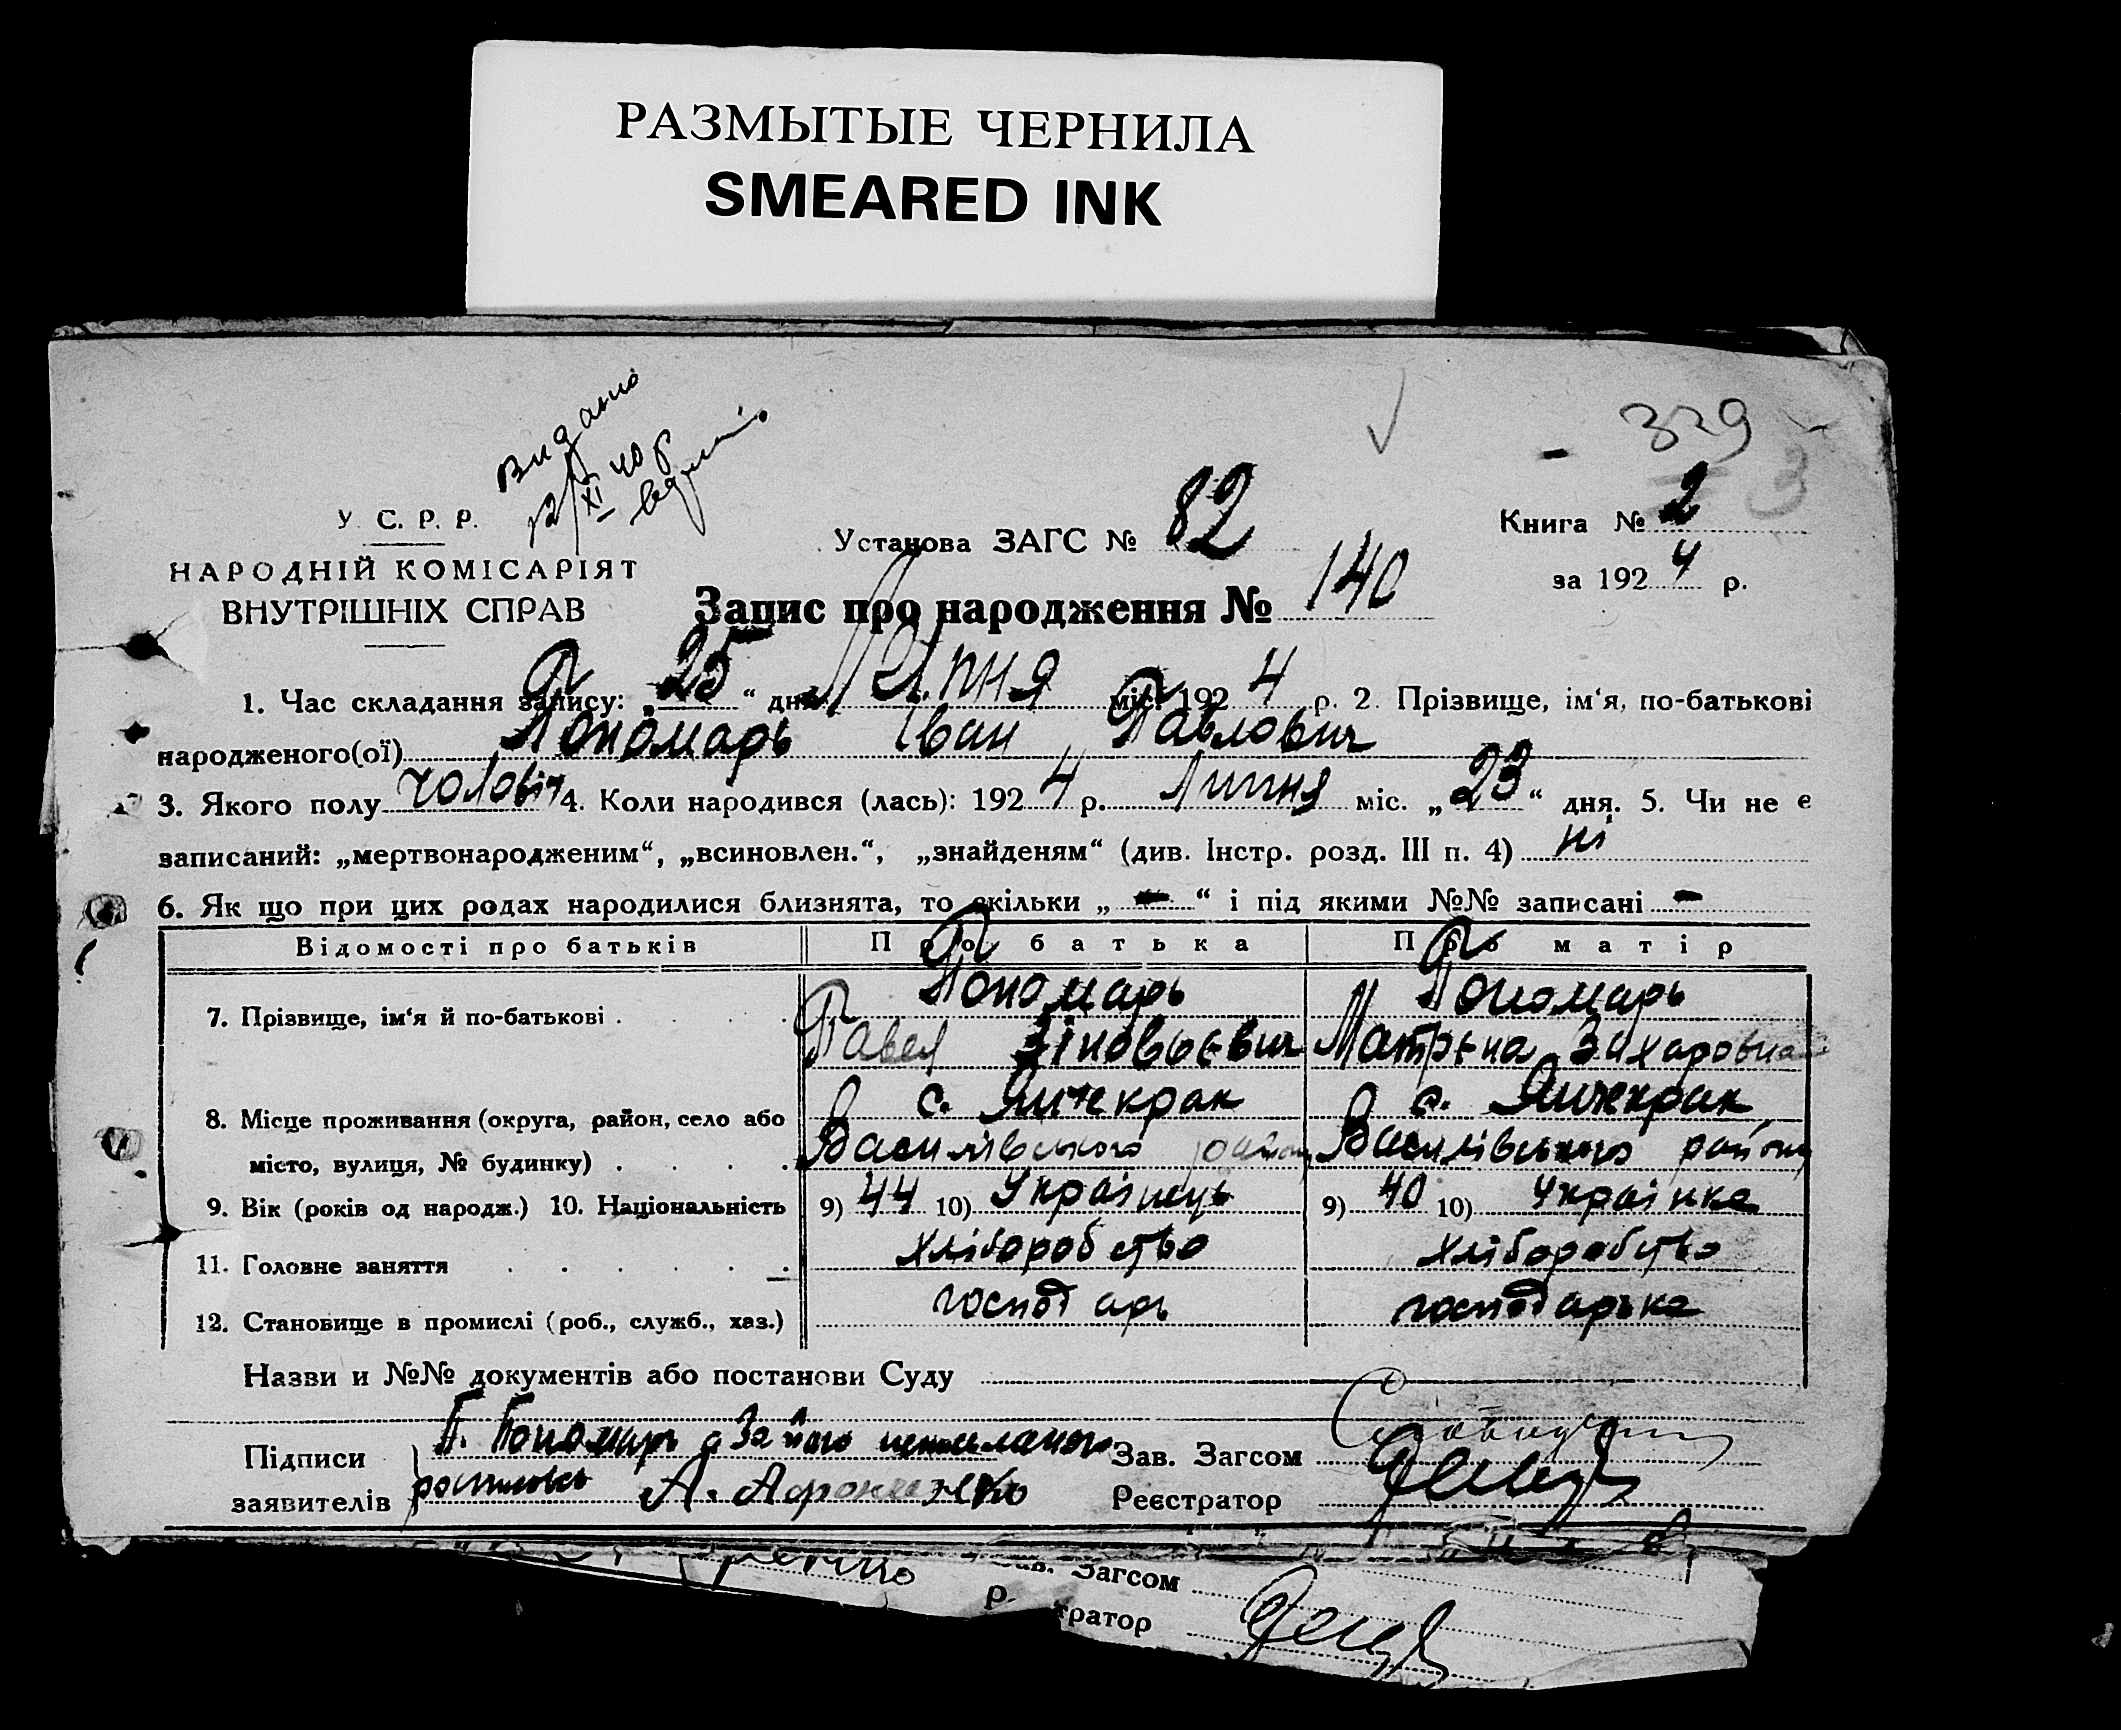 РАЗМЫТЫЕ ЧЕРНИЛА
SMEARED INK
339
3
Видано
XI 40 р
У. С. Р. Р.
НАРОДНІЙ КОМІСАРІЯТ
ВНУТРІШНІХ СПРАВ
Установа ЗАГС № 82
Книга № 2
за 1924 р.
Запис про народження № 140
1. Час складання запису: „25“ дня Липня міс. 1924 р. 2. Прізвище, ім‘я, по-батькові
народженого(ої) Пономарь Іван Павлович
3. Якого полу чоловіч 4. Коли народився (лась): 1924 р. Липня міс. „23“ дня. 5. Чи не є
записаний: „мертвонародженим“, „всиновлен.“, „знайденям“ (див. Інстр. розд. III п. 4) ні
6. Як що при цих родах народилися близнята, то скільки „-“ і під якими №№ записані -
Відомості про батьків Про батька Про матір
7. Прізвище, ім‘я й по-батькові . Пономарь Пономарь
Павел Зіновьєвич Матрена Захаровна
8. Місце проживання (округа, район, село або с. Янчекрак с. Янчекрак
місто, вулиця, № будинку) . Василівського району Василівського району
9. Вік (років од народж.) 10. Національність 9) 44 10) Українець 9) 40 10) Українка
11. Головне заняття хліборобство хліборобство
12. Становище в промислі (роб., служб., хаз.) господарь господарька
Назви и №№ документів або постанови Суду
Підписи П. Пономарь а За його Зав. Загсом
заявителів А. Реєстратор
Зав. Загсом
р. тратор